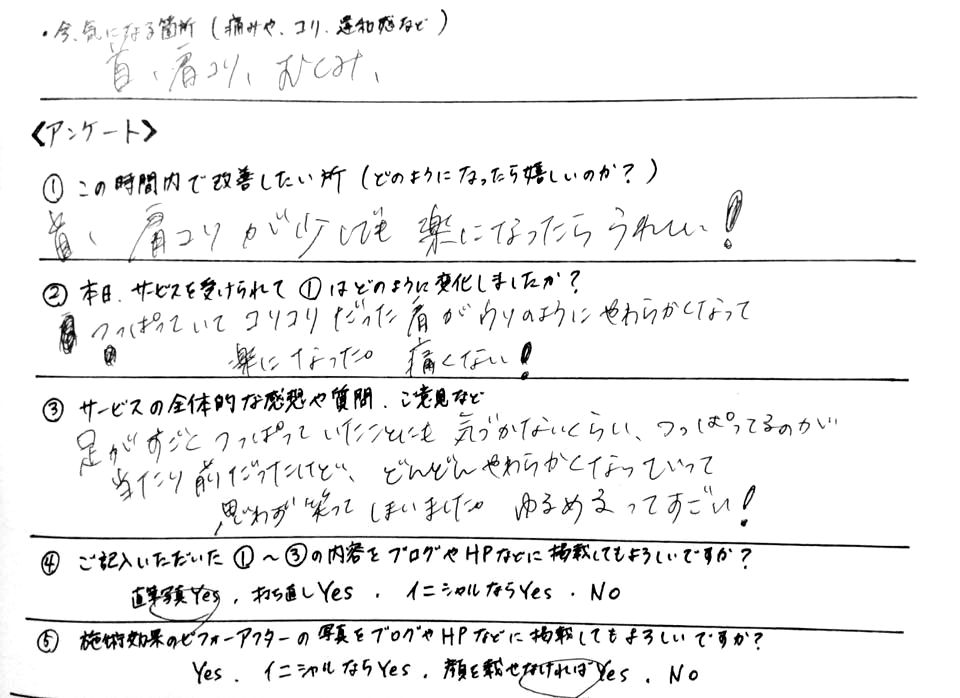 ・今、気になる箇所(痛みや、コリ、違和感など)
首、肩コリ、むくみ、
〈アンケート〉
① この時間内で改善したい所(どのようになったら嬉しいのか?)
首、肩コリが少しでも楽になったらうれしい!
② 本日、サービスを受けられて①はどのように変化しましたか?
つっぱっていてコリコリだった肩がウソのようにやわらかくなって
楽になった。痛くない!
③ サービスの全体的な感想や質問、ご意見など
足がすごくつっぱっていたことにも気づかないくらい、つっぱってるのが
当たり前だったけど、どんどんやわらかくなっていって
思わず笑ってしまいました。ゆるめるってすごい!
④ ご記入いただいた①〜③の内容をブログやHPなどに掲載してもよろしいですか?
直筆写真Yes、打ち直しYes、イニシャルならYes、No
⑤ 施術効果のビフォーアフターの写真をブログやHPなどに掲載してもよろしいですか?
Yes、イニシャルならYes、顔を載せなければYes、No